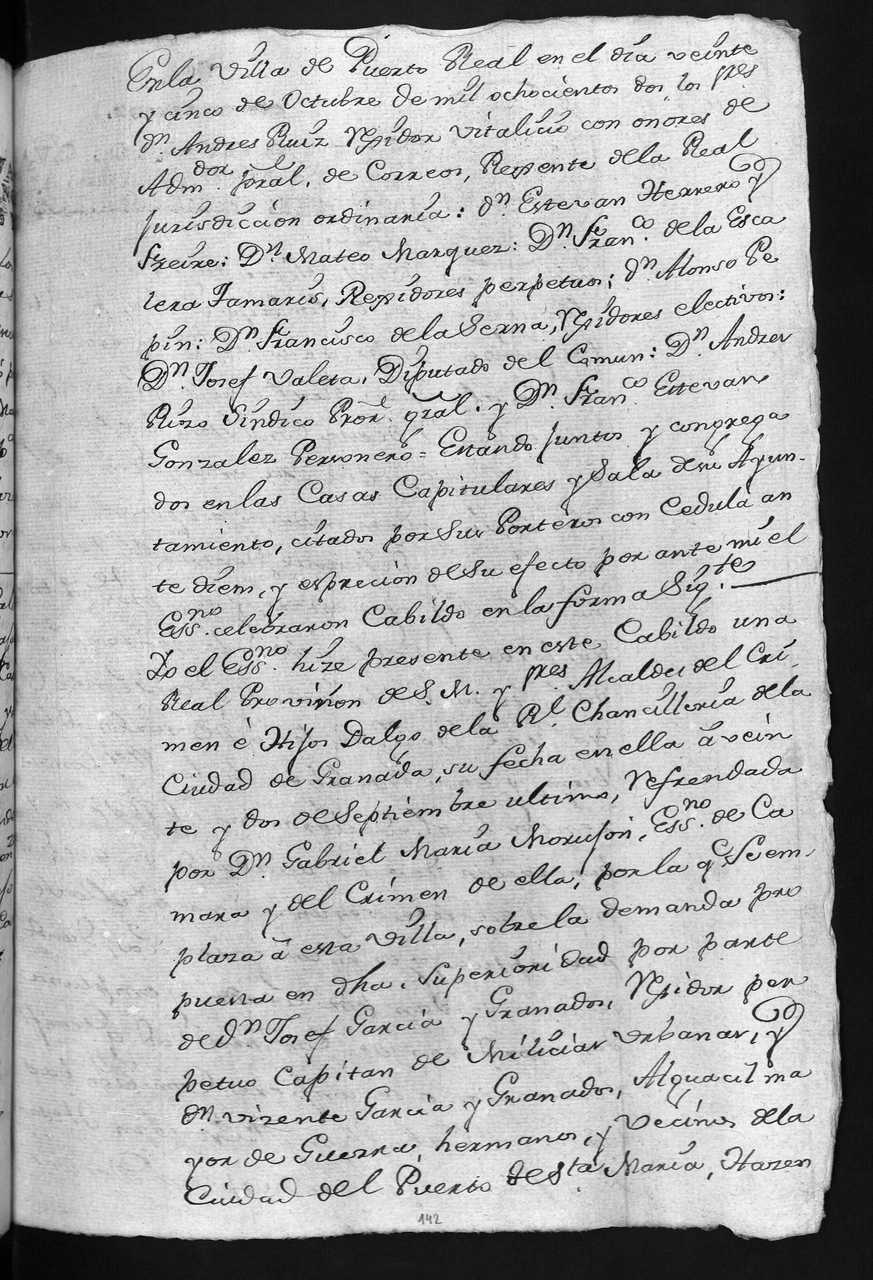 En la Villa de Puerto Real en el dia veinte
y cinco de Octubre de mil ochocientos dos los Sres
Dn. Andres Ruiz Rexidor vitalicio con onores de
Admdor. pral. de Correos, Rexente de la Real
Jurisdiccion ordinaria: Dn. Estevan Herrero y
Freire: Dn. Mateo Marquez: Dn. Franco. de la Esca
lera Tamariz, Rexidores perpetuos; Dn. Alonso Pe
pin: Dn. Francisco de la Serna, Rexidores electivos:
Dn. Josef Valeta, Diputado del Comun: Dn. Andres
Rizo Sindico Pror. gral. y Dn. Franco Estevan
Gonzalez Personero = Estando juntos y congrega
dos en las Casas Capitulares y Sala de su Ayun-
tamiento, citados por sus Porteros con Cedula an
te diem, y esprecion de su efecto por ante mi el
Essno. celebraron Cabildo en la forma Sigte.
Yo el Essno. hize presente en este Cabildo una
Real Provision de S. M. y Sres Alcaldes del Cri-
men é Hijos Dalgo de la Rl. Chancilleria de la
Ciudad de Granada, su fecha en ella á vein
te y dos de Septiembre ultimo, Refrendada
por Dn. Gabriel Maria Morison, Essno. de Ca
mara y del Crimen de ella; por la qe. Se em-
plaza á esta Villa, sobre la demanda pro
puesta en dha. Superioridad por parte
de Dn Josef Garcia y Granados, Rexidor per
petuo Capitan de Milicias Urbanas, y
Dn. Vizente Garcia y Granados, Alguacil ma
yor de Guerra, hermanos, y vecinos de la
Ciudad del Puerto de Sta. Maria, Hazen
142